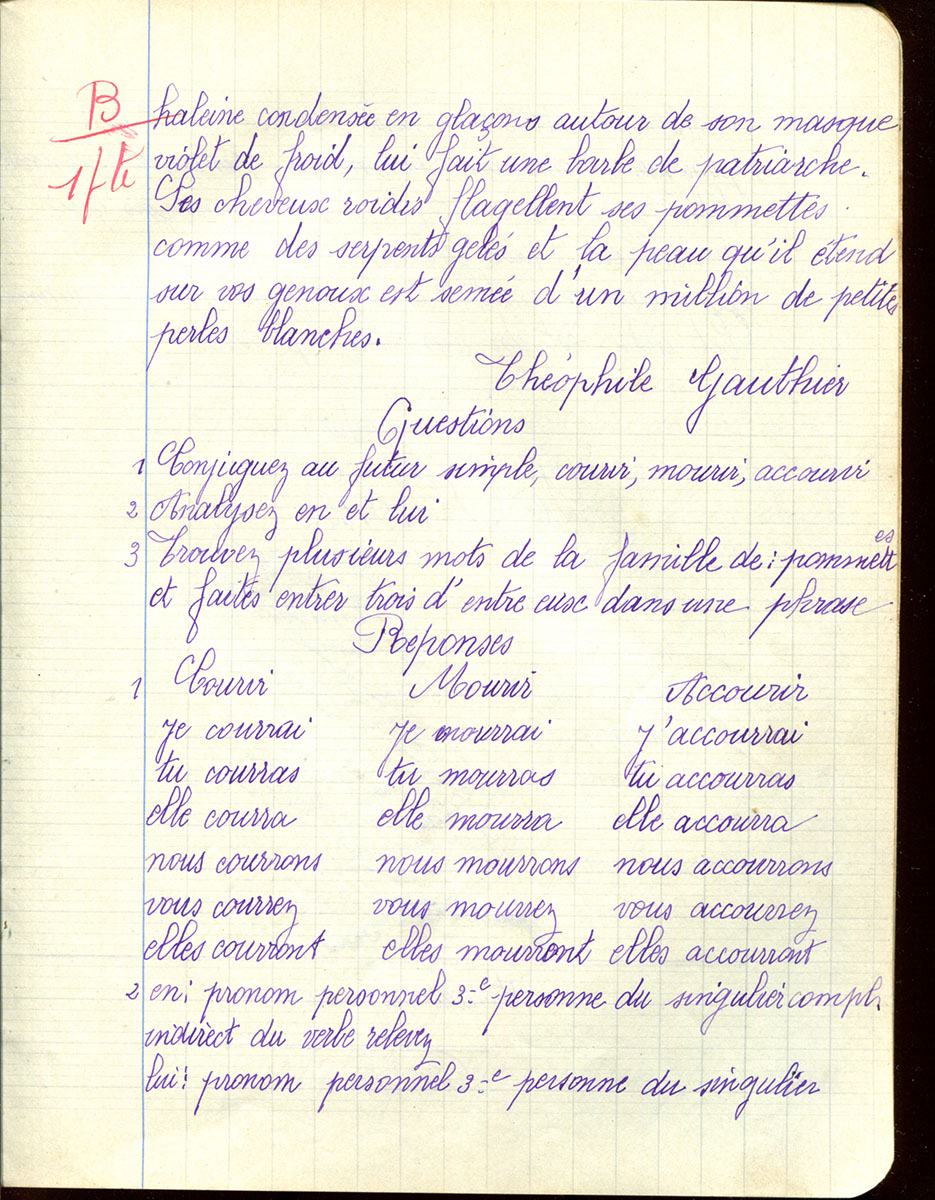 B
1 fte
haleine condensée en glaçons autour de son masque
violet de froid, lui fait une barbe de patriarche.
Ses cheveux roidis flagellent ses pommettes
comme des serpents gelés et la peau qu'il étend
sur vos genoux est semée d'un million de petites
perles blanches.
Théophile Gauthier
Questions
1 Conjuguez au futur simple, courir, mourir, accourir
2 Analysez en et lui
3 Trouvez plusieurs mots de la famille de : pommettes
et faites entrer trois d'entre eux dans une phrase
Réponses
1 Courir Mourir Accourir
je courrai je mourrai j'accourrai
tu courras tu mourras tu accourras
elle courra elle mourra elle accourra
nous courrons nous mourrons nous accourrons
vous courrez vous mourrez vous accourrez
elles courront elles mourront elles accourront
2 en : pronom personnel 3-e personne du singulier compl.
indirect du verbe relevez
lui : pronom personnel 3-e personne du singulier